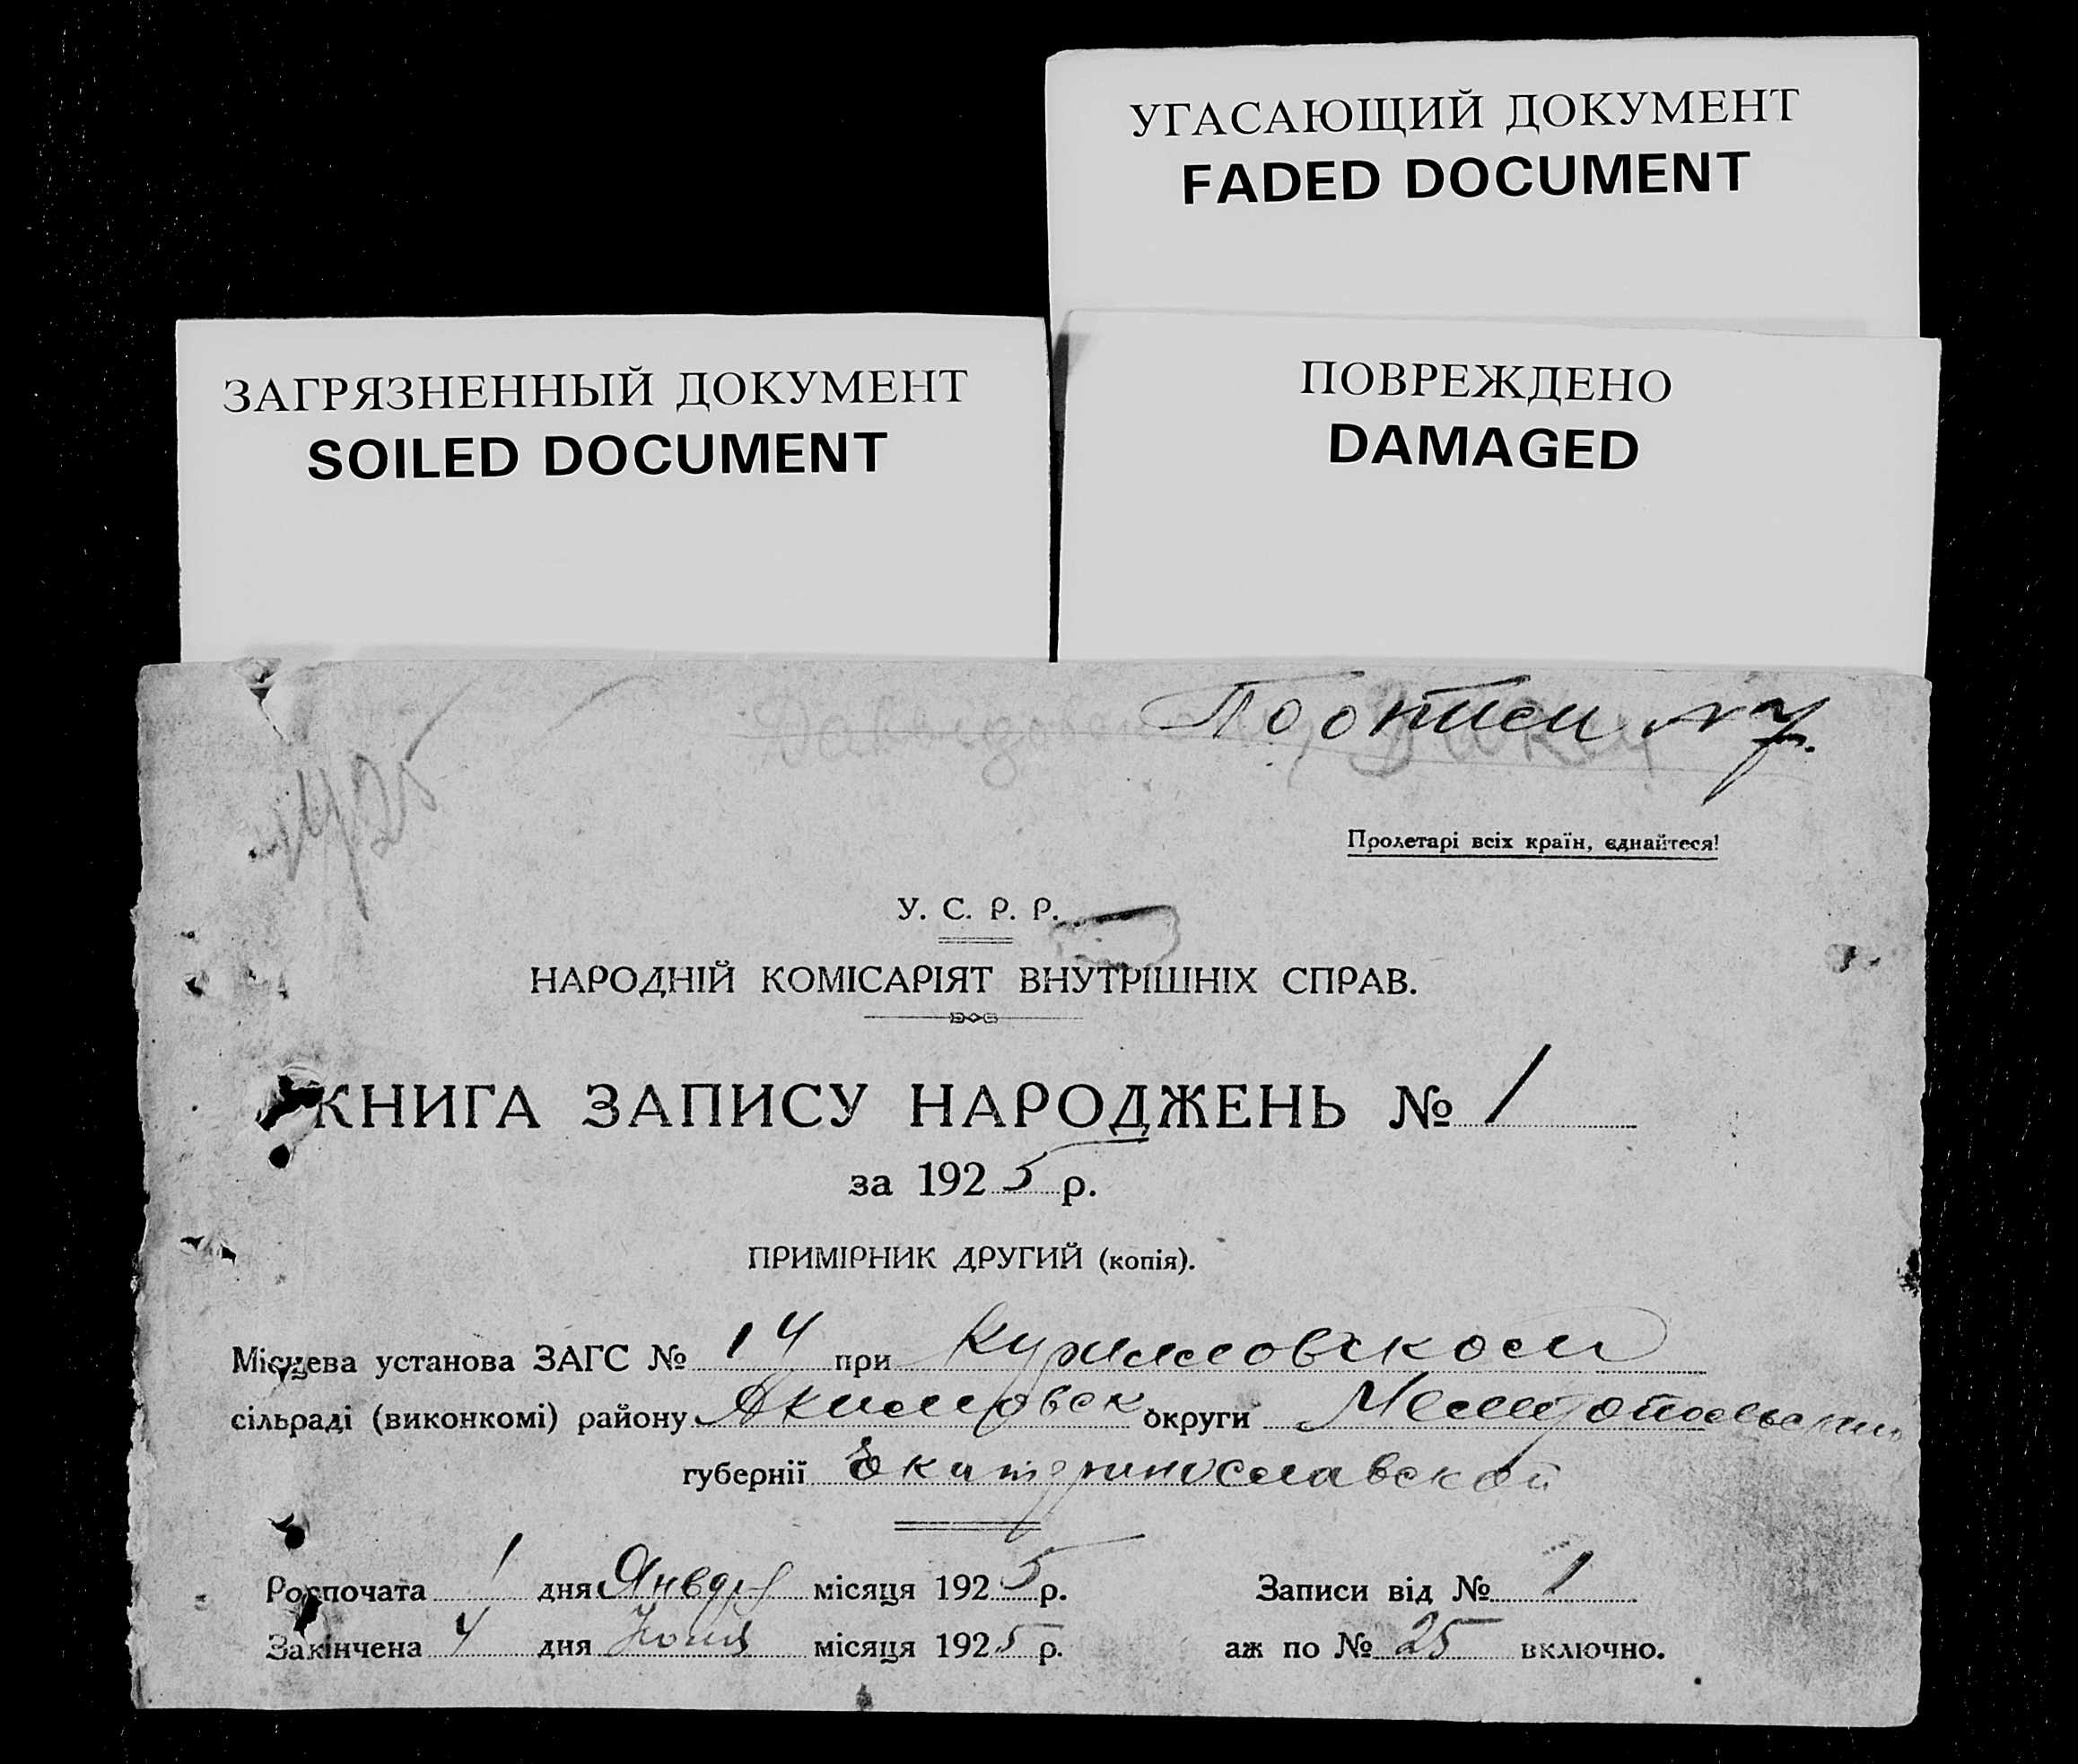 УГАСАЮЩИЙ ДОКУМЕНТ
FADED DOCUMENT
ЗАГРЯЗНЕННЫЙ ДОКУМЕНТ
SOILED DOCUMENT
ПОВРЕЖДЕНО
DAMAGED
По описи № 7
1925
Пролетарі всіх країн, єднайтеся!
У. С. Р. Р.
НАРОДНІЙ КОМІСАРІЯТ ВНУТРІШНІХ СПРАВ.
КНИГА ЗАПИСУ НАРОДЖЕНЬ № 1
за 1925 р.
ПРИМІРНИК ДРУГИЙ (копія).
Місцева установа ЗАГС № 14 при
сільраді (виконкомі) району Акимовск округи Мелитопольской
губернії Екатеринославской
Розпочата 1 дня Января місяця 1925 р. Записи від № 1
Закінчена 4 дня Июня місяця 1925 р. аж по № 25 включно.